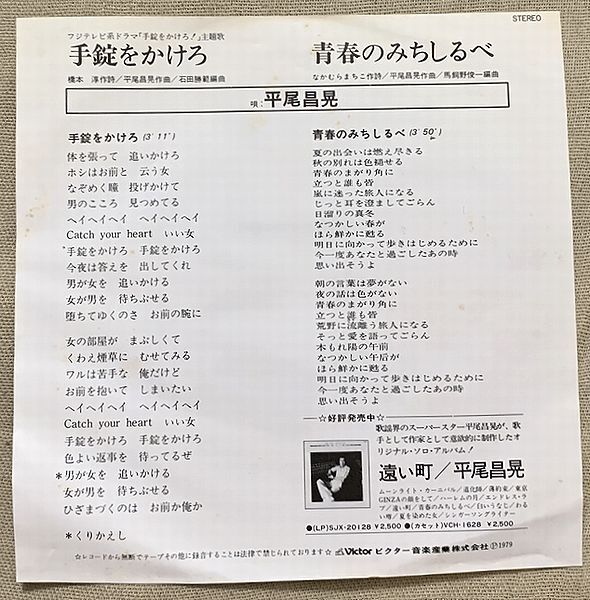 STEREO
フジテレビ系ドラマ「手錠をかけろ!」主題歌
手錠をかけろ
橋本 淳作詩/平尾昌晃作曲/石田勝範編曲
青春のみちしるべ
なかむらまちこ作詩/平尾昌晃作曲/馬飼野俊一編曲
唄:平尾昌晃
手錠をかけろ(3′11″)
体を張って 追いかけろ
ホシはお前と 云う女
なぞめく瞳 投げかけて
男のこころ 見つめてる
ヘイヘイヘイ ヘイヘイヘイ
Catch your heart いい女
*手錠をかけろ 手錠をかけろ
今夜は答えを 出してくれ
男が女を 追いかける
女が男を 待ちぶせる
堕ちてゆくのさ お前の腕に
女の部屋が まぶしくて
くわえ煙草に むせてみる
ワルは苦手な 俺だけど
お前を抱いて しまいたい
ヘイヘイヘイ ヘイヘイヘイ
Catch your heart いい女
手錠をかけろ 手錠をかけろ
色よい返事を 待ってるぜ
*男が女を 追いかける
女が男を 待ちぶせる
ひざまづくのは お前か俺か
*くりかえし
青春のみちしるべ(3′50″)
夏の出会いは燃え尽きる
秋の別れは色褪せる
青春のまがり角に
立つと誰も皆
嵐に迷った旅人になる
じっと耳を澄ましてごらん
日溜りの真冬
なつかしい春が
ほら鮮かに甦る
明日に向かって歩きはじめるために
今一度あなたと過ごしたあの時
思い出そうよ
朝の言葉は夢がない
夜の話は色がない
青春のまがり角に
立つと誰も皆
荒野に流離う旅人になる
そっと愛を語ってごらん
木もれ陽の午前
なつかしい午后が
ほら鮮かに甦る
明日に向かって歩きはじめるために
今一度あなたと過ごしたあの時
思い出そうよ
☆好評発売中☆
歌謡界のスーパースター平尾昌晃が、歌
手として作家として意欲的に制作したオ
リジナル・ソロ・アルバム!
遠い町/平尾昌晃
ムーンライト・カーニバル/道化師/薄約束/東京
GINZAの顔をして/ハーレムの月/エンドレス・ラ
ブ/遠い町/青春のみちしるべ/白いうなじ/わる
い噂/夏を染めた女/シンガーソングライター
●(LP)SJX-20128 ¥2,500 ●(カセット)VCH-1628 ¥2,500
☆レコードから無断でテープその他に録音することは法律で禁じられております☆ Victor ビクター音楽産業株式会社 Ⓟ1979